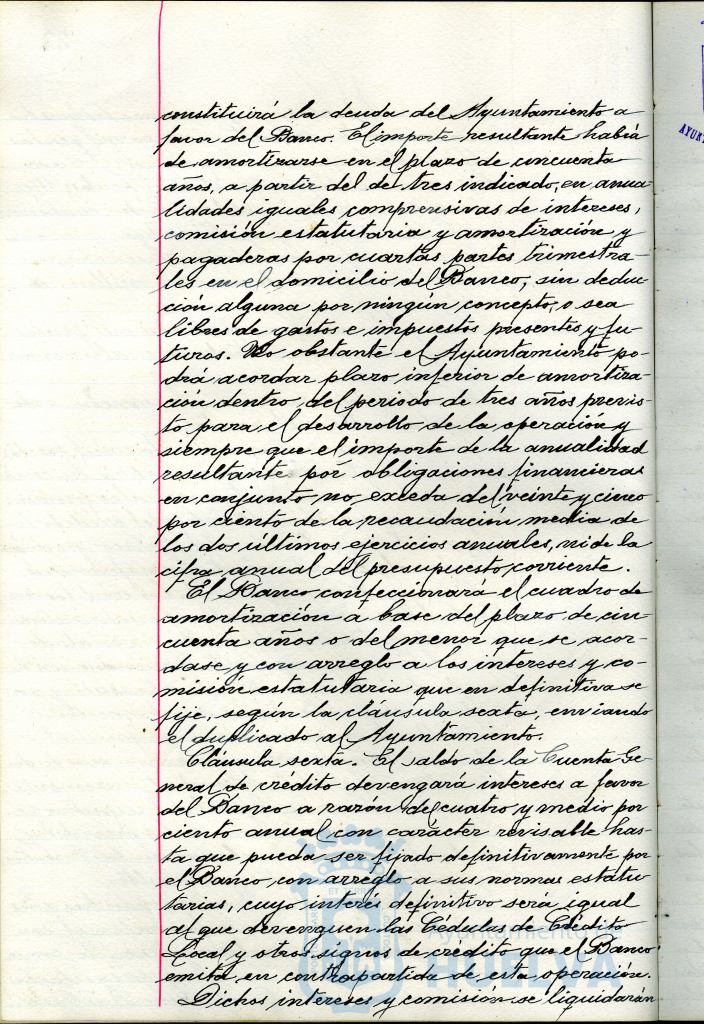 constituirá la deuda del Ayuntamiento a
favor del Banco. El importe resultante habrá
de amortizarse en el plazo de cincuenta
años, a partir del de tres indicado, en anua-
lidades iguales comprensivas de intereses,
comisión estatutaria y amortización y
pagaderas por cuartas partes trimestra-
les en el domicilio del Banco, sin deduc-
ción alguna por ningún concepto, o sea
libres de gastos e impuestos presentes y fu-
turos. No obstante el Ayuntamiento po-
drá acordar plazo inferior de amortiza-
ción dentro del periodo de tres años previs-
to para el desarrollo de la operación y
siempre que el importe de la anualidad
resultante por obligaciones financieras
en conjunto no exceda del veinte y cinco
por ciento de la recaudación media de
los dos últimos ejercicios anuales, ni de la
cifra anual del presupuesto corriente.
El Banco confeccionará el cuadro de
amortización a base del plazo de cin-
cuenta años o del menor que se acor-
dase y con arreglo a los intereses y co-
misión estatutaria que en definitiva se
fije, según la cláusula sexta, enviando
el duplicado al Ayuntamiento.
Cláusula sexta. El saldo de la Cuenta Ge-
neral de crédito devengará intereses a favor
del Banco a razón del cuatro y medio por
ciento anual con carácter revisable has-
ta que pueda ser fijado definitivamente por
el Banco con arreglo a sus normas estatu-
tarias, cuyo interés definitivo será igual
al que devenguen las Cédulas de Crédito
Local y otros signos de crédito que el Banco
emita en contrapartida de esta operación.
Dichos intereses y comisión se liquidarán
Ayuntamiento de
HUELVA
AYUN